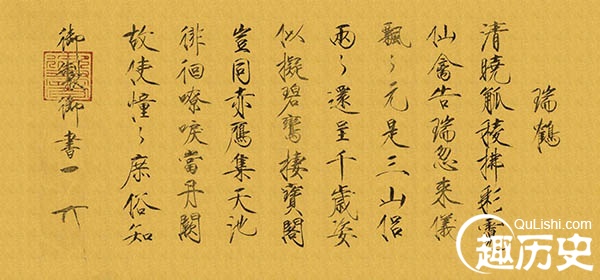 瑞鶴
清曉觚稜拂彩霓
仙禽告瑞忽来儀
飄々元是三山侶
兩々還呈千歳姿
似擬碧鸞棲寶閣
豈同赤鴈集天池
徘徊嘹唳當丹闕
故使憧々庶俗知
御製御書
QuLishi.com
趣历史